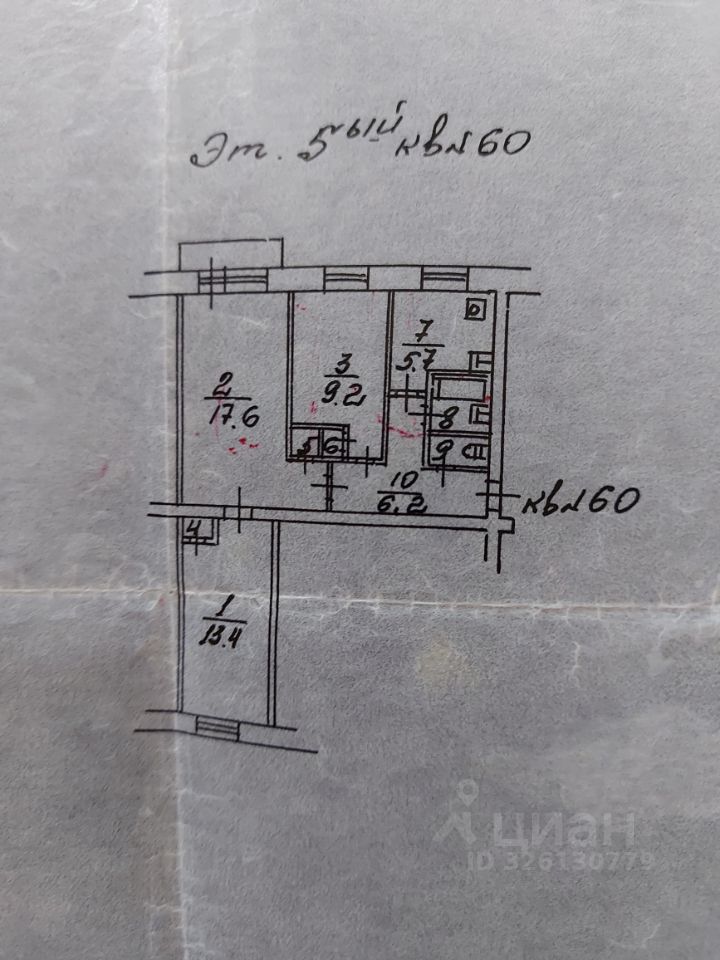 Эт. 5ый кв№60
7
5.7
3
9.2
2
17.6
8
5
6
9
10
6.2
кв№60
4
1
13.4
циан
ID 326130779